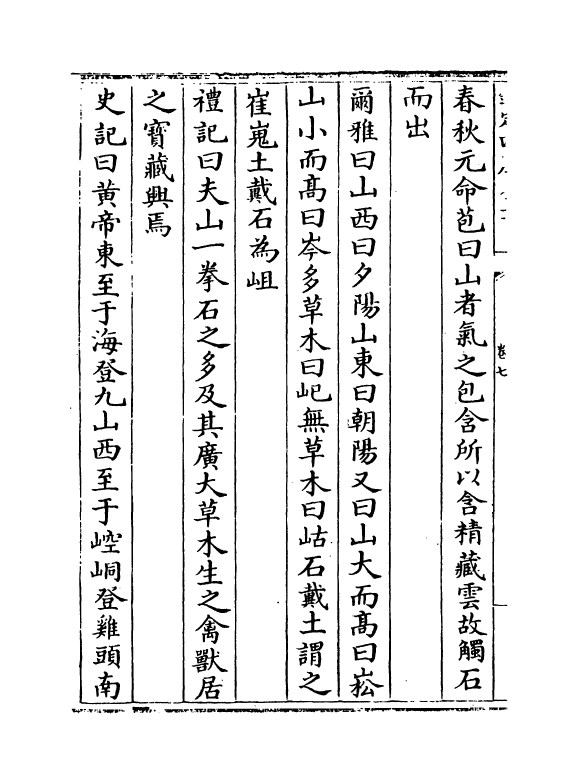 卷七
春秋元命苞曰山者氣之包含所以含精藏雲故觸石
而出
爾雅曰山西曰夕陽山東曰朝陽又曰山大而髙曰崧
山小而髙曰岑多草木曰屺無草木曰岵石戴土謂之
崔嵬土戴石為岨
禮記曰夫山一拳石之多及其廣大草木生之禽獸居
之寳藏興焉
史記曰黄帝東至于海登九山西至于崆峒登雞頭南